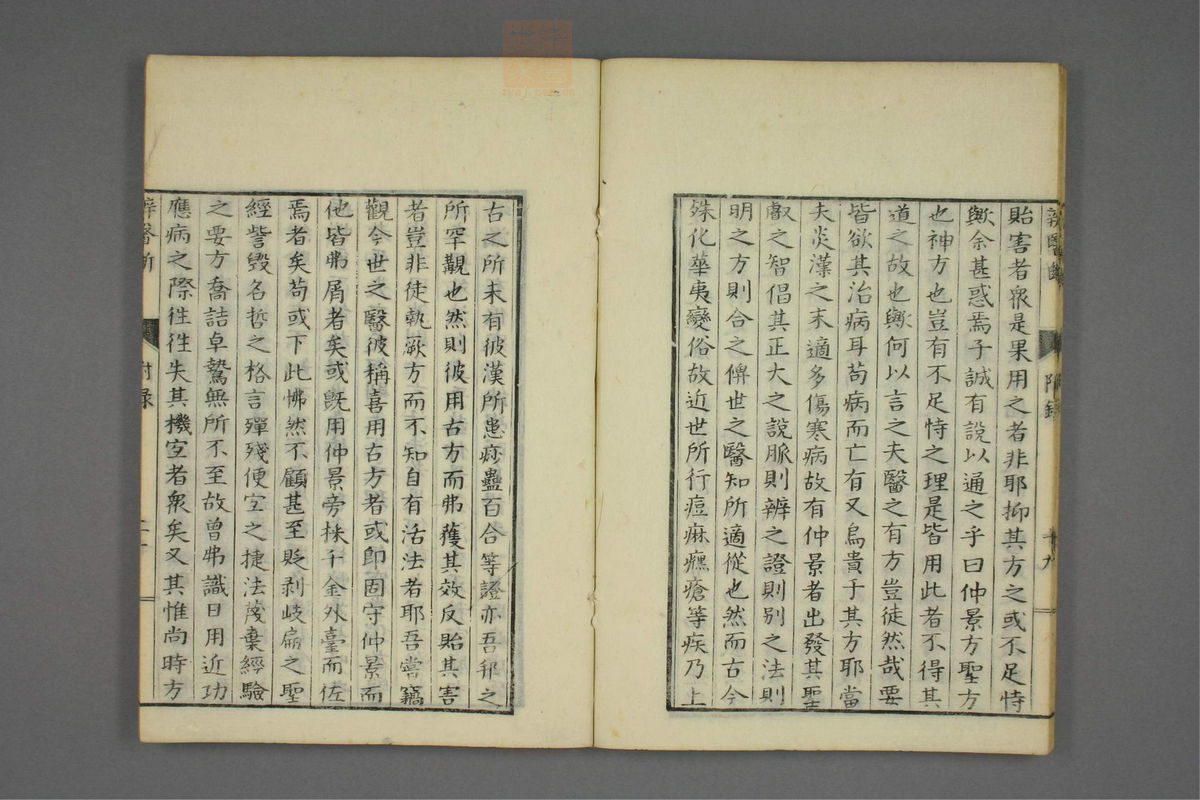 貽害者衆是果用之者非耶抑其方之或不足恃
歟余甚惑焉子誠有說以通之乎曰仲景方聖方
也神方也豈有不足恃之理是皆用此者不得其
道之故也歟何以言之夫醫之有方豈徒然哉要
皆欲其治病耳苟病而亡有又烏貴于其方耶當
夫炎漢之末適多傷寒病故有仲景者出發其聖
叡之智倡其正大之說脈則辨之證則別之法則
明之方則合之俾世之醫知所適從也然而古今
殊化華夷變俗故近世所行痘麻癘瘡等疾乃上
古之所未有彼漢所患痧蠱百合等證亦吾邦之
所罕觀也然則彼用古方而弗獲其效反貽其害
者豈非徒執厥方而不知自有活法者耶吾嘗竊
觀今世之醫彼稱喜用古方者或卽固守仲景而
他皆弗屑者矣或旣用仲景旁採千金外臺而佐
焉者矣苟或下此怫然不顧甚至貶剥岐扁之聖
經訾毀名哲之格言彈殘便宜之捷法廢棄經驗
之要方喬詰卓鷙無所不至故曾弗識日用近功
應病之際徃徃失其機宜者衆矣又其惟尚時方
附錄